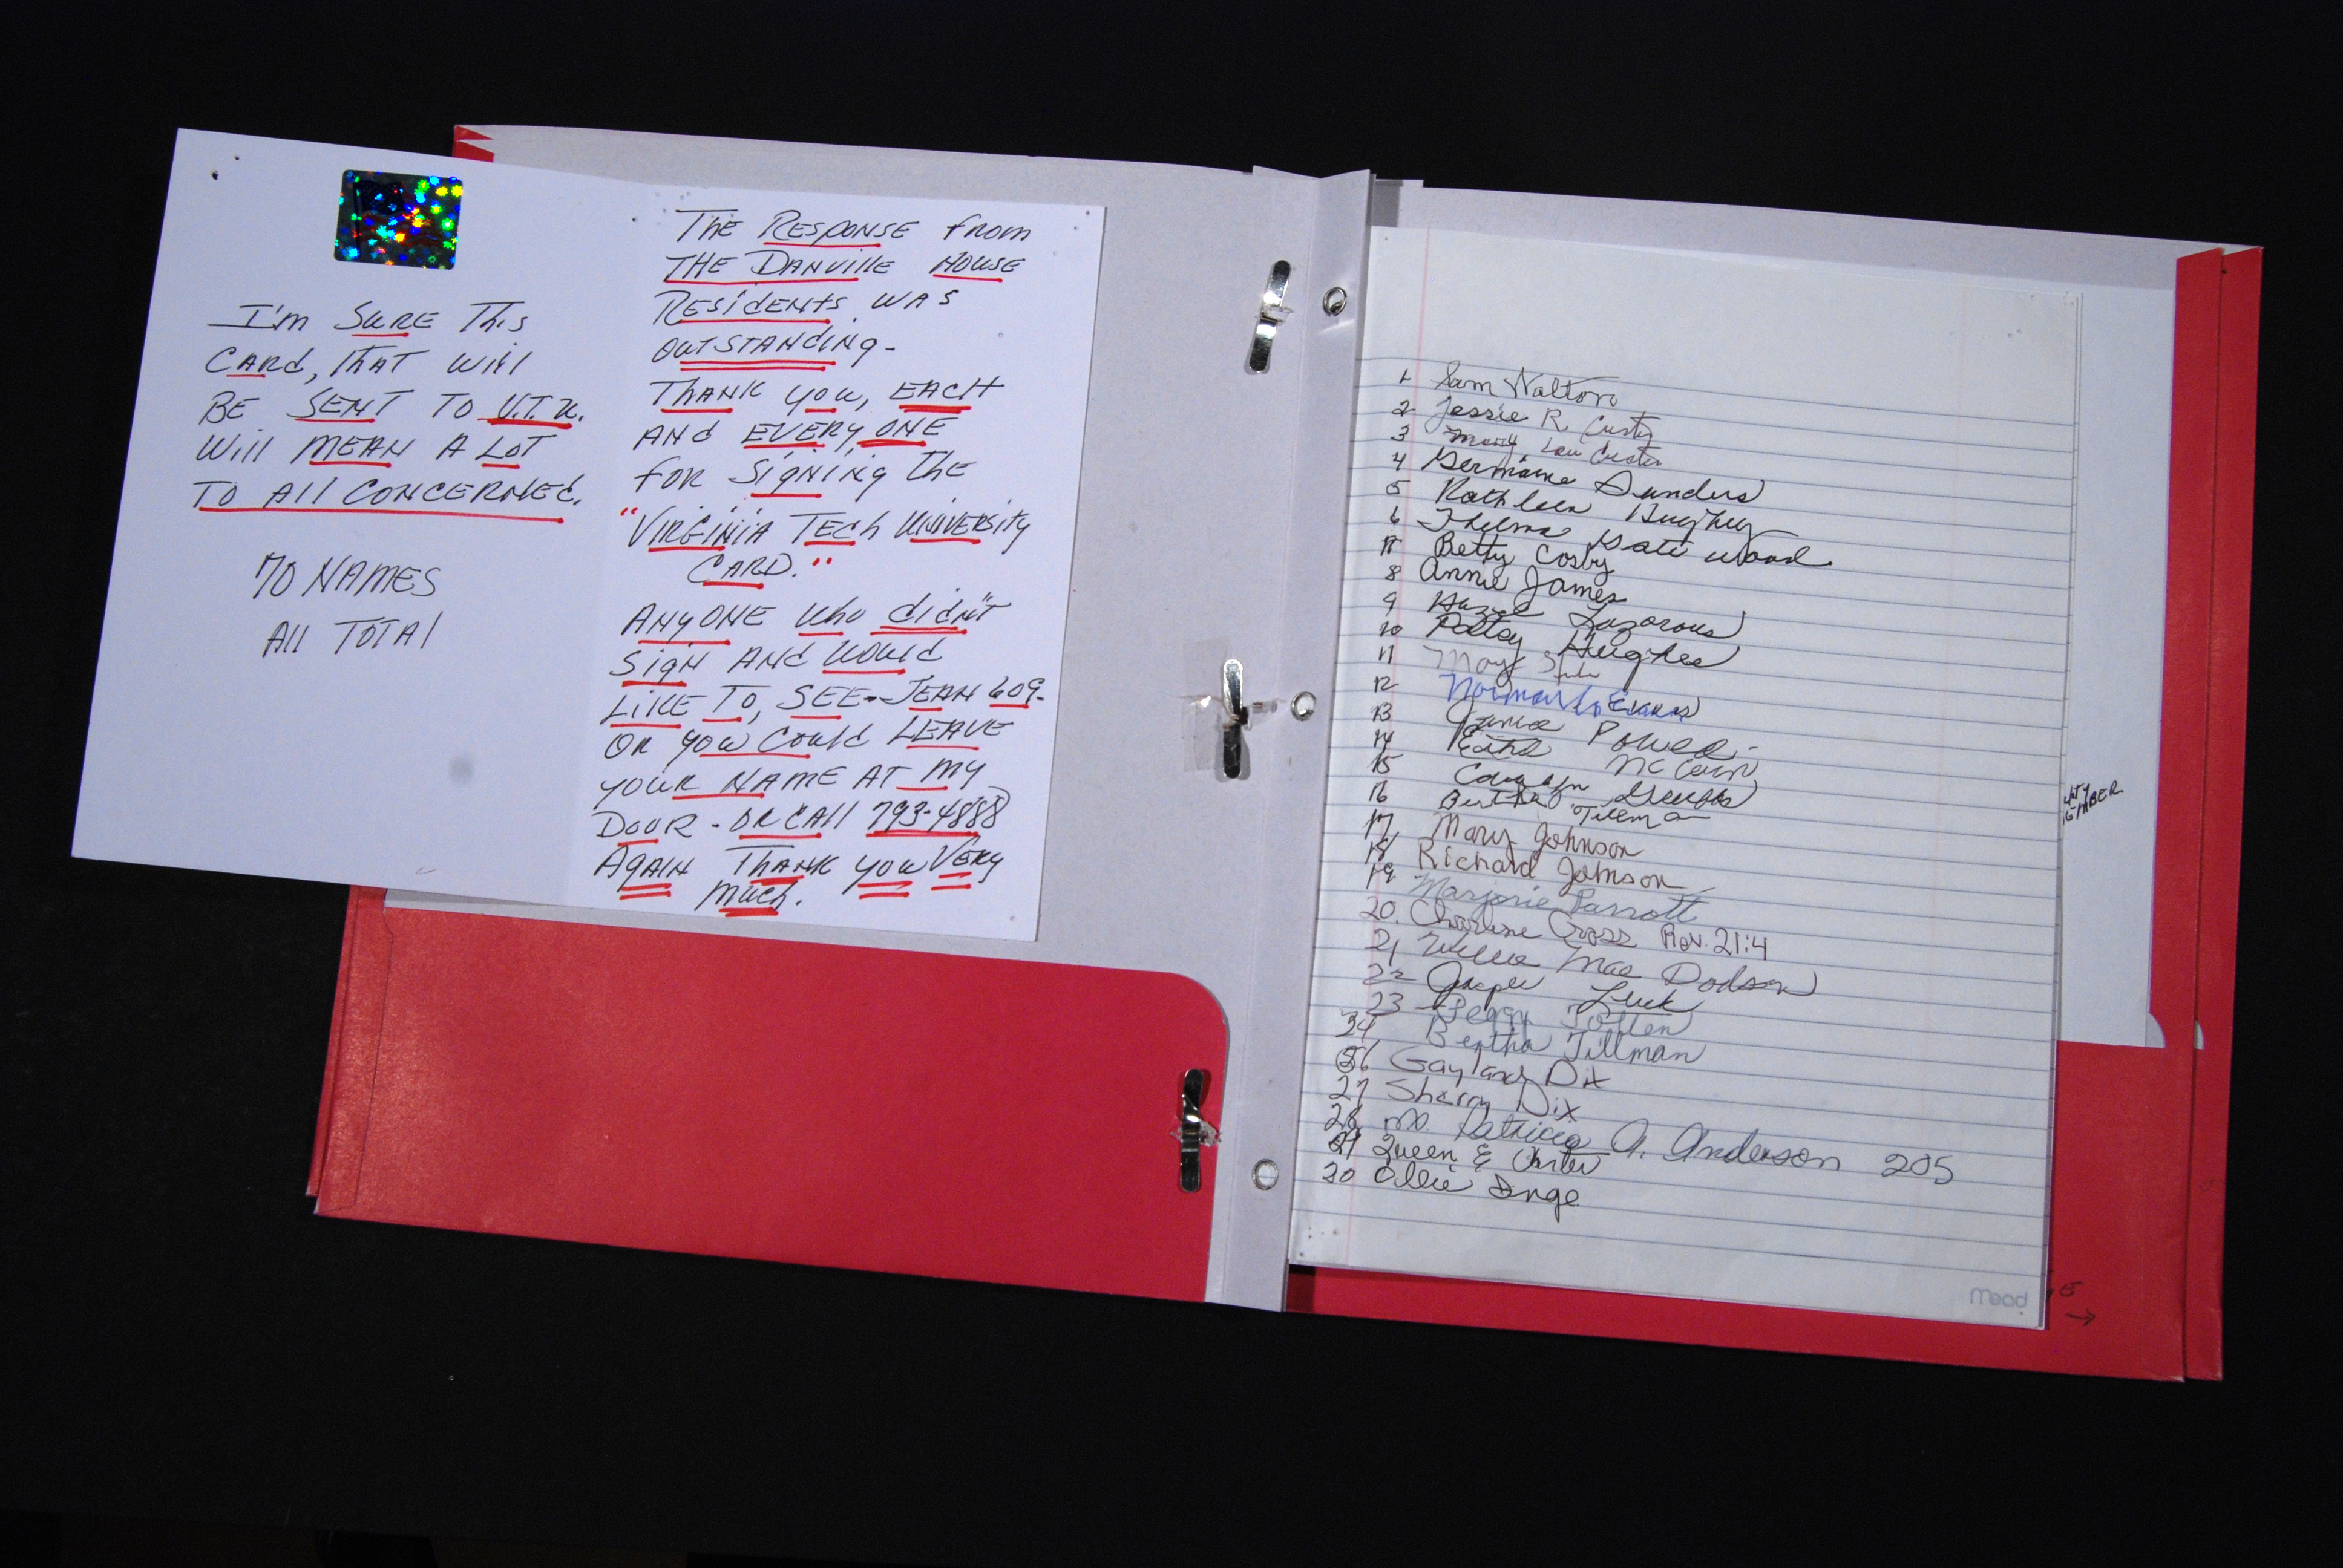 I'm SURE This
CARd, THAT Will
BE SENT TO V.T.U.
Will MEAN A LOT
TO All CONCERNEd.
70 NAMES
All TOTAl
THE RESPONSE from
THE DANVillE HOUSE
RESidENtS WAS
OUTSTANdiNg-
THANK you, EACH
ANd EVERY ONE
foR SigNiNg THE
"VIRGINIA TECh UNIVERSity
CARD."
ANyONE Who didn't
SigN ANd Would
LiKE TO, SEE-JEAN 609-
OR you Could LEAVE
youR NAME AT my
DOOR - OR CAll 793-4888
AgAiN THANK you VERy
Much.
1 Sam Walton
2 Jessie R. Custy
3 Mary Lou
4 Germaine Sanders
5 Kathleen Hughey
6 Thelma Gatewood
7 Betty Cosby
8 Annie James
9 Hazel Lazorous
10 Patsy Hughes
11 May
12 Norman Evans
13 Junie Powell
14 McCain
15 Carolyn
16 Bertha Tillman
17 Mary Johnson
18 Richard Johnson
19 Marjorie Parrott
20. Charlene Cross Rev. 21:4
21 Willie Mae Dodson
22 Jasper Luck
23 Peggy Totten
24 Bertha Tillman
26 Gayland Dix
27 Sharon Dix
28 Patricia A. Anderson 205
29 Queen E
30 Ollie Inge
Mead